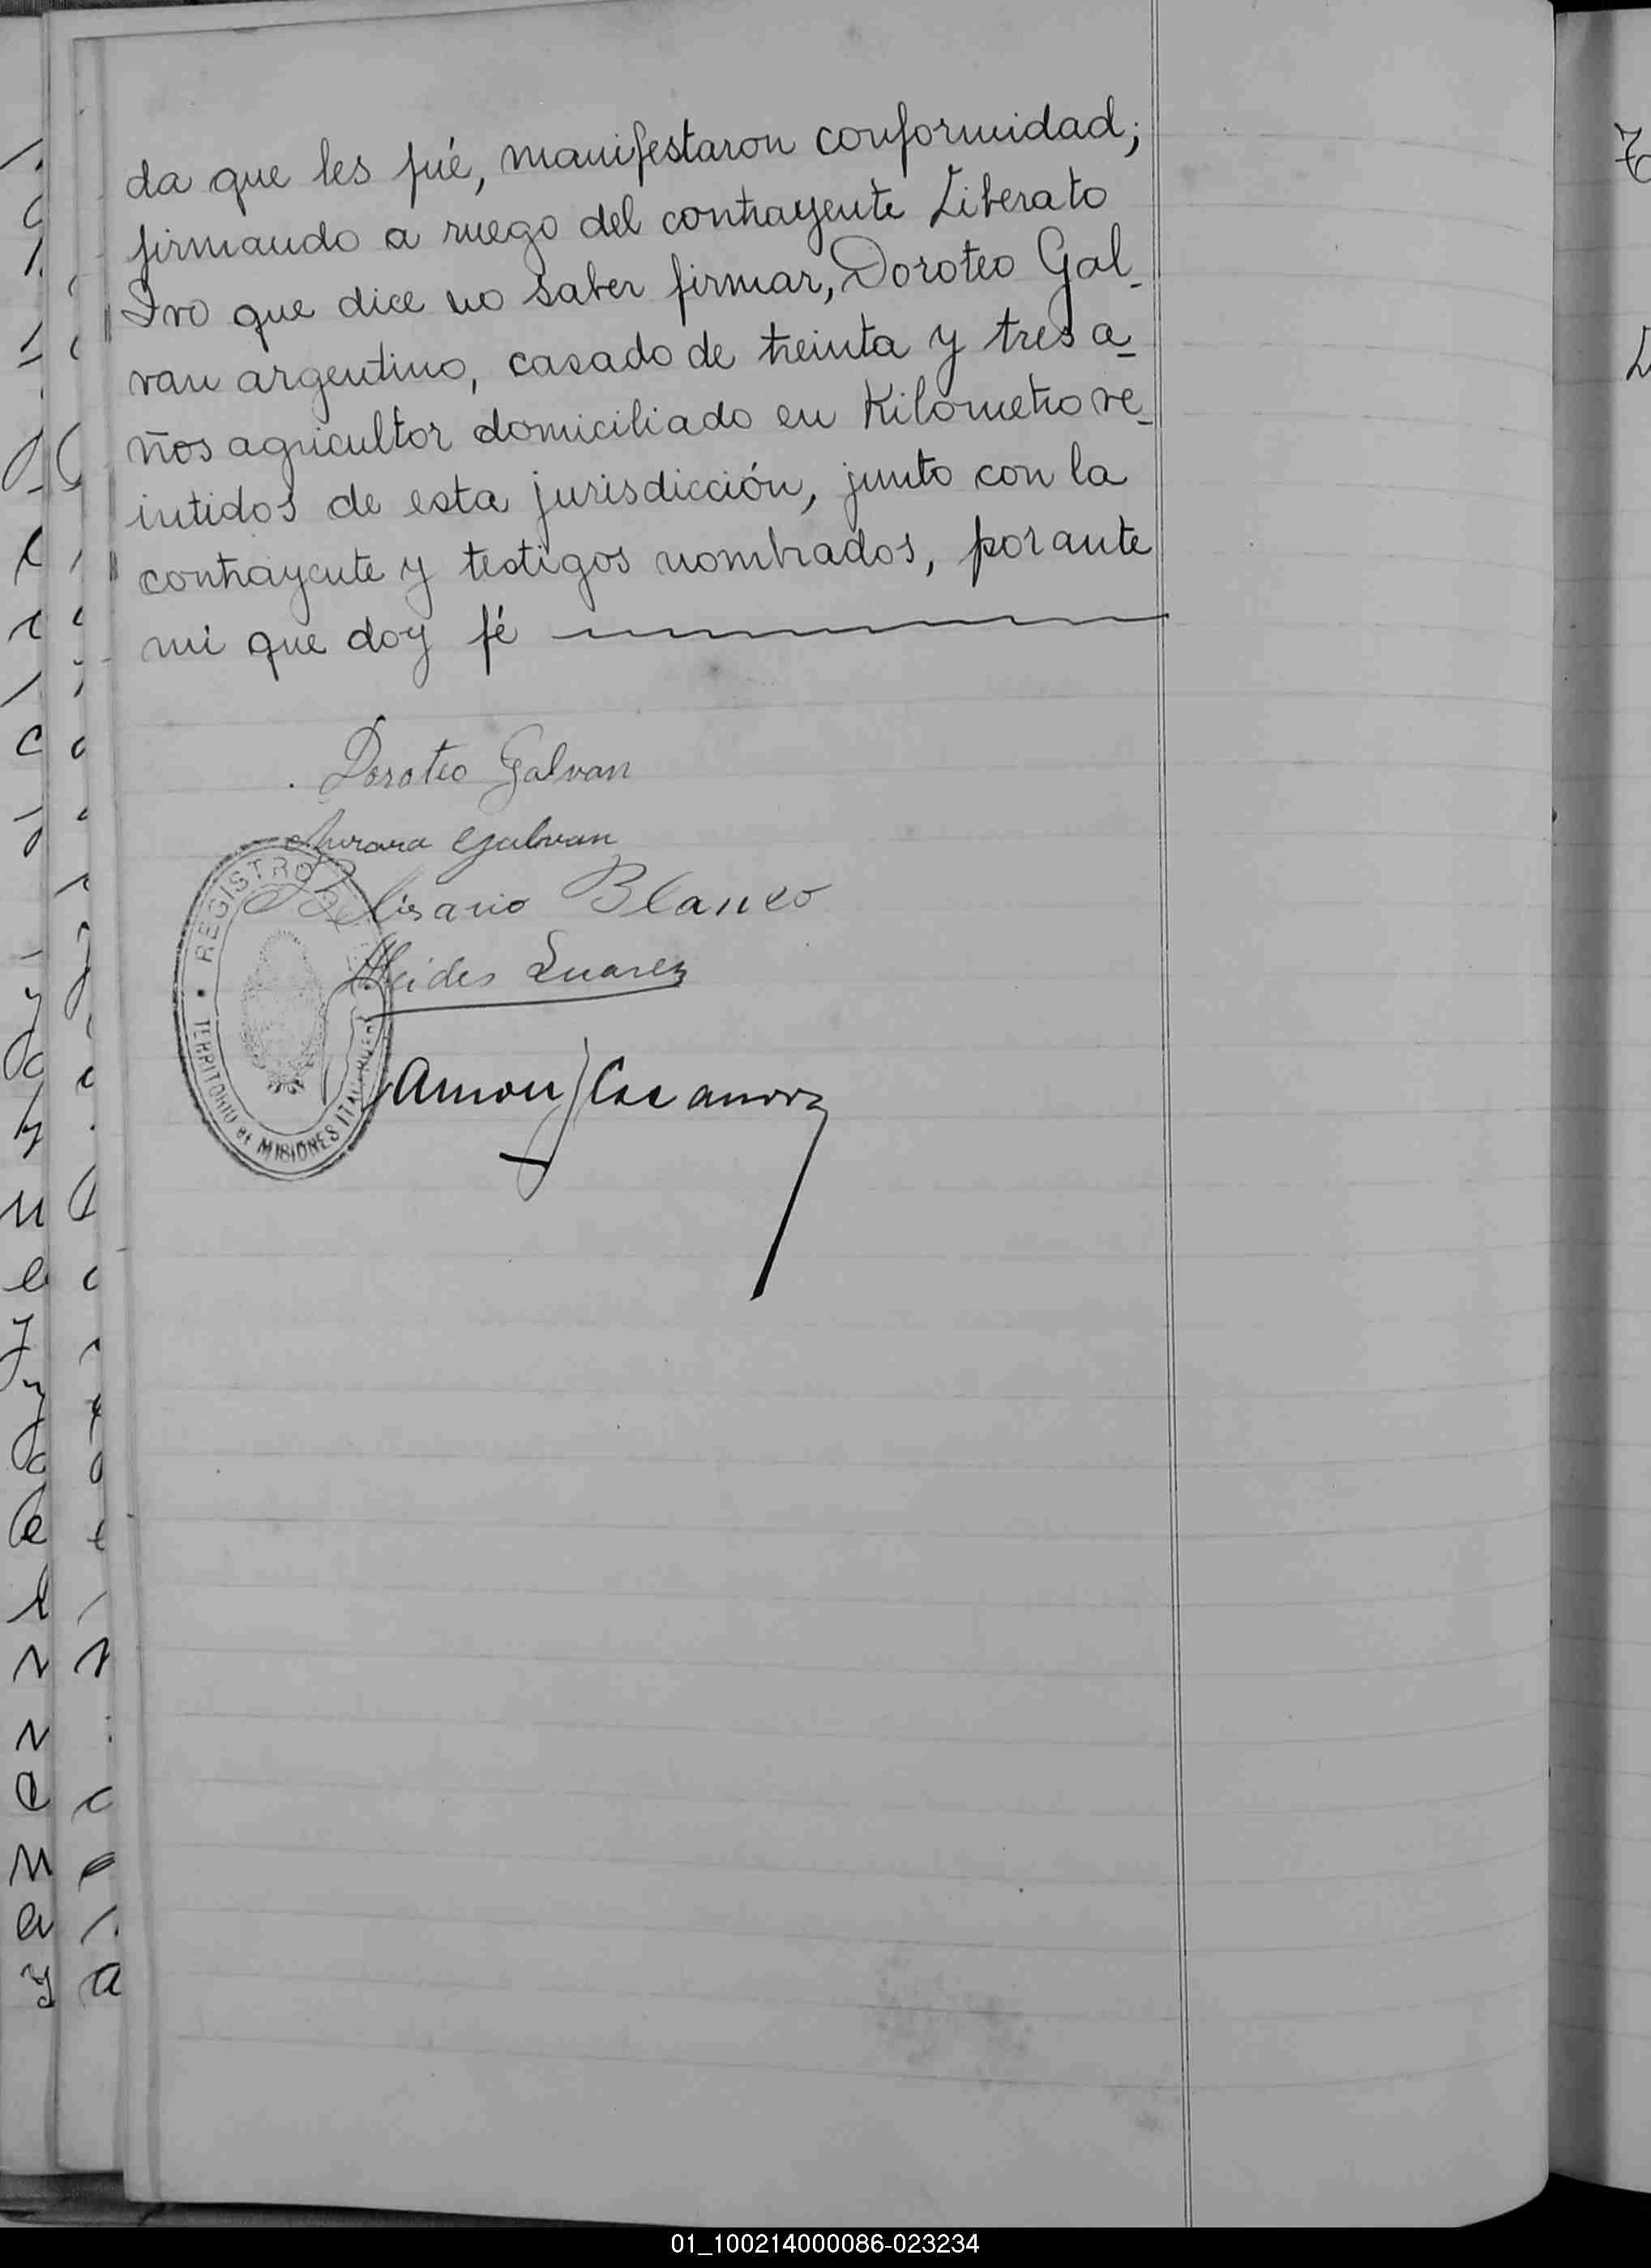 da que les fué, manifestaron conformidad;
firmando a ruego del contrayente Liberato
Ivo que dice no saber firmar, Doroteo Gal-
van argentino, casado de treinta y tres a-
ños agricultor domiciliado en Kilometro ve-
intidos de esta jurisdicción, junto con la
contrayente y testigos nombrados, por ante
mi que doy fé
Doroteo Galvan
Aurora Galvan
Belisario Blanco
Alcides Suarez
Ramon J Casanova
REGISTRO
TERRITORIO de MISIONES
01_100214000086-023234